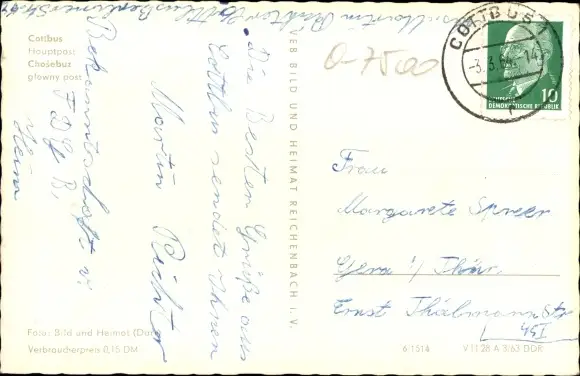 Cottbus
Hauptpost
Chośebuz
głowny post
Die Besten Grüße aus
Cottbus sendet Ihnen
Martin Richter
Bekanntschaft v.
FDGB,
Heim
VEB BILD UND HEIMAT REICHENBACH i. V.
O-7500
COTTBUS 1
10
DEMOKRATISCHE REPUBLIK
Frau
Margarete Spreer
Gera i/ Thür.
Ernst Thälmann Str
Foto: Bild und Heimat
Verbraucherpreis 0,15 DM
6 1514
V 11 28 A 3/63 DDR